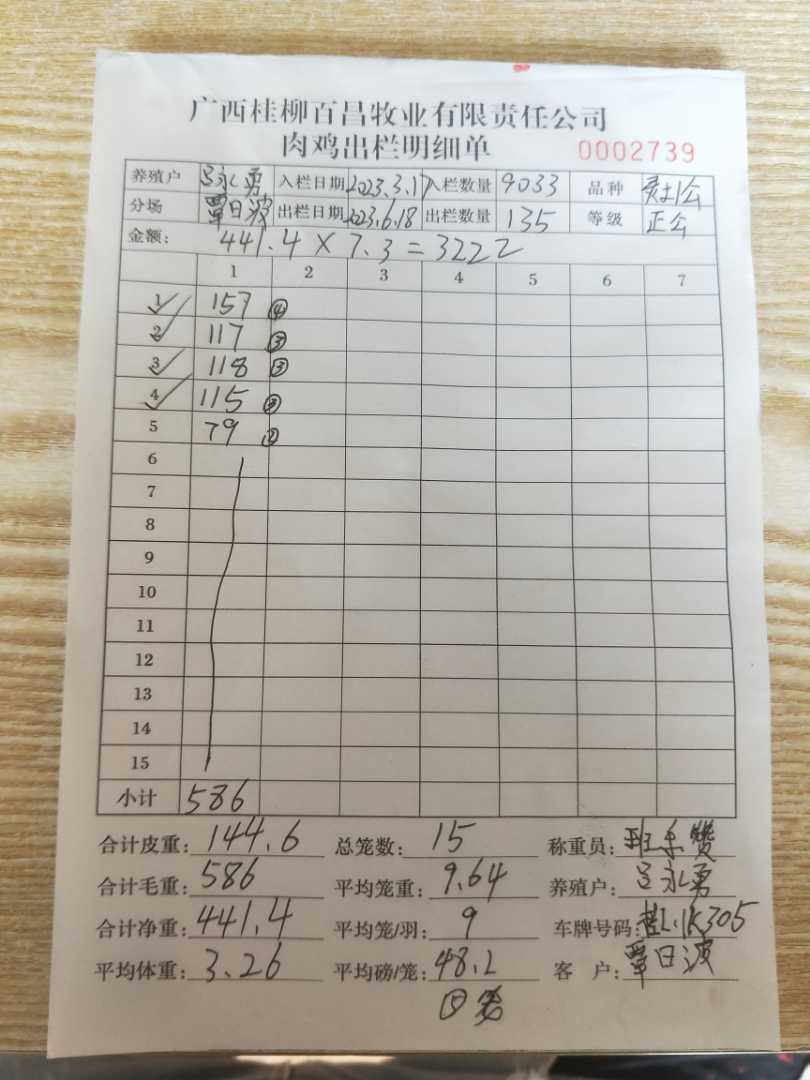 广西桂柳百昌牧业有限责任公司
肉鸡出栏明细单 0002739
养殖户 吕永勇 入栏日期 2023.3.17 入栏数量 9033 品种
分场 覃日波 出栏日期 2023.6.18 出栏数量 135 等级 正公
金额: 441.4 × 7.3 = 3222
1 2 3 4 5 6 7
1 157 ④
2 117 ③
3 118 ③
4 115 ③
5 79 ②
6
7
8
9
10
11
12
13
14
15
小计 586
合计皮重: 144.6 总笼数: 15 称重员:
合计毛重: 586 平均笼重: 9.64 养殖户: 吕永勇
合计净重: 441.4 平均笼/羽: 9 车牌号码:
平均体重: 3.26 平均磅/笼: 48.2 客 户: 覃日波